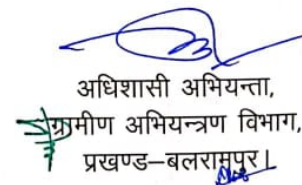 अधिशासी अभियन्ता,
ग्रामीण अभियन्त्रण विभाग,
प्रखण्ड–बलरामपुर।